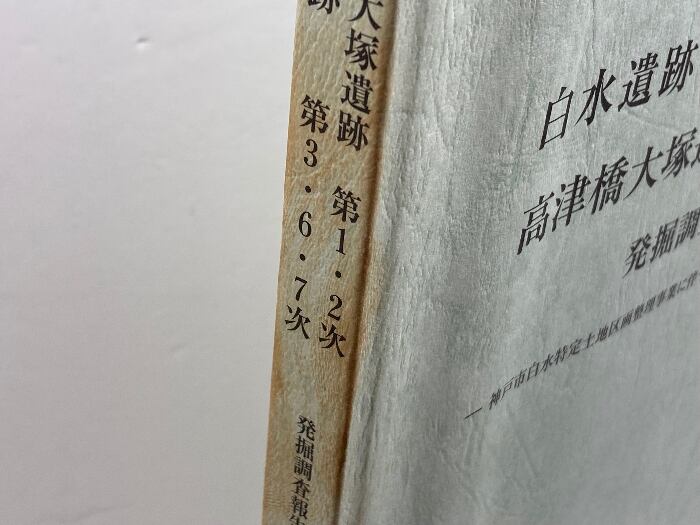 大塚遺跡 第1・2次
跡 第3・6・7次
発掘調査報告
白水遺跡
高津橋大塚遺
発掘調
―神戸市白水特定土地区画整理事業に伴